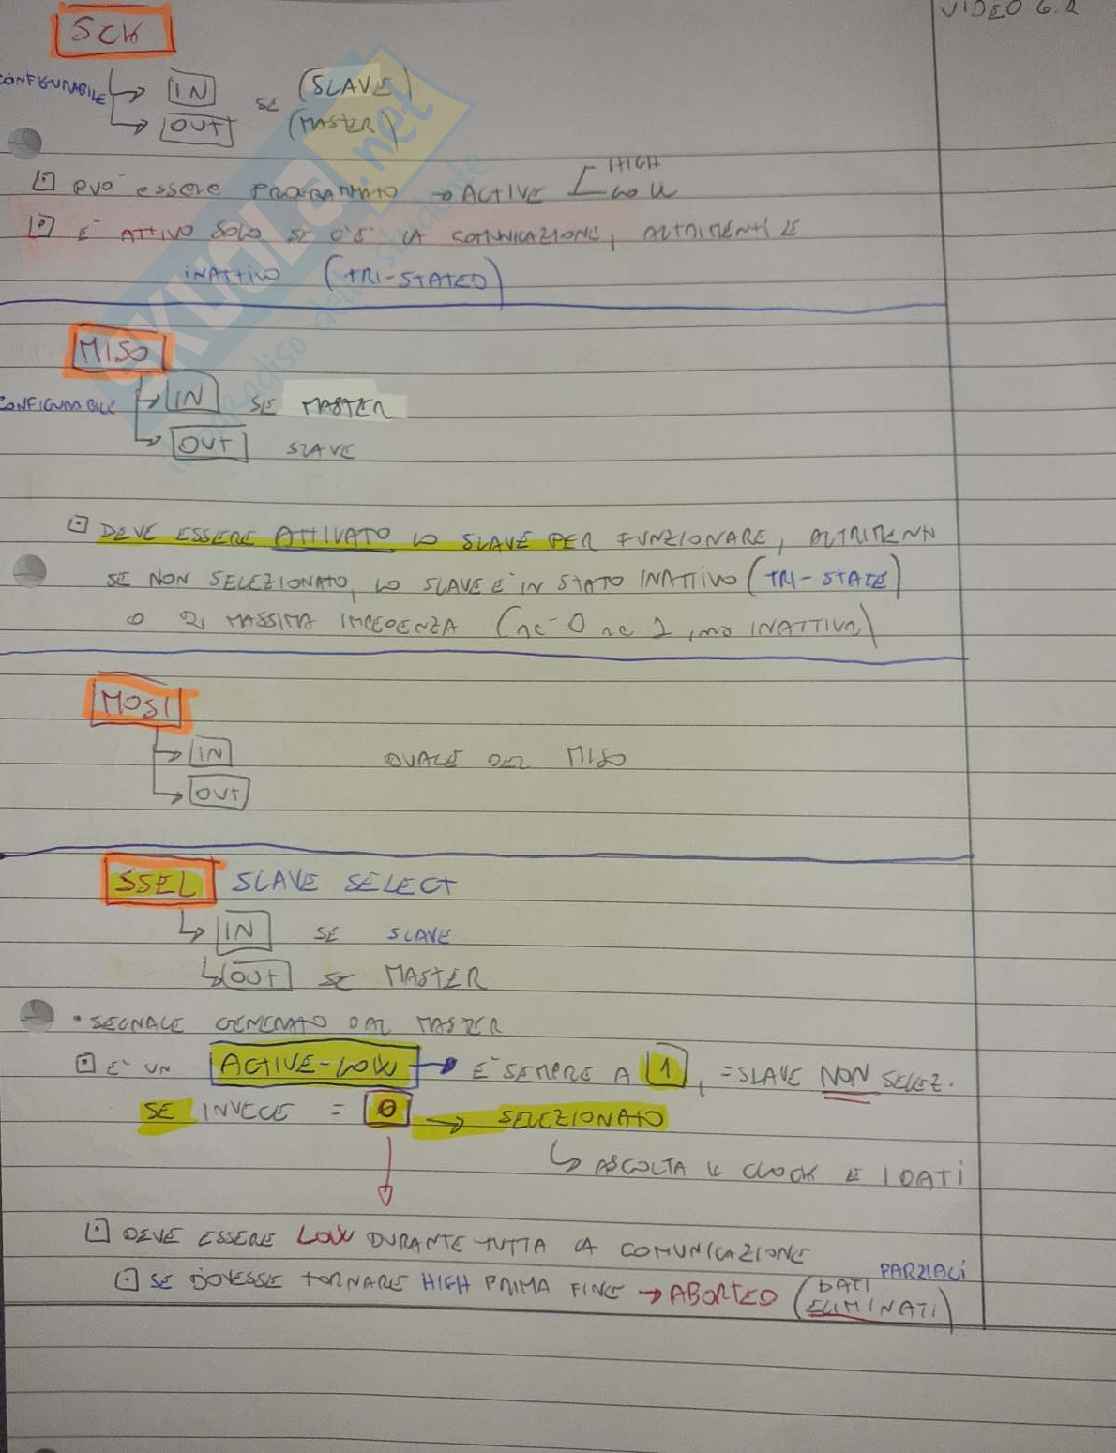 VIDEO 6.2
SCK
CONFIGURABILE IN SE (SLAVE)
OUT (MASTER)
PUO' ESSERE PROGRAMMATO → ACTIVE HIGH
LOW
È ATTIVO SOLO SE C'È LA COMUNICAZIONE, ALTRIMENTI È
INATTIVO (TRI-STATED)
MISO
CONFIGURABILE IN SE MASTER
OUT SLAVE
DEVE ESSERE ATTIVATO LO SLAVE PER FUNZIONARE, ALTRIMENTI
SE NON SELEZIONATO, LO SLAVE È IN STATO INATTIVO (TRI-STATE)
O DI MASSIMA IMPEDENZA (nè 0 nè 1, ma INATTIVA)
MOSI
IN UGUALE DEL MISO
OUT
SSEL SLAVE SELECT
IN SE SLAVE
OUT SE MASTER
• SEGNALE GENERATO DAL MASTER
E' UN ACTIVE-LOW → E' SEMPRE A 1, = SLAVE NON SELEZ.
SE INVECE = 0 → SELEZIONATO
ASCOLTA IL CLOCK E I DATI
DEVE ESSERE LOW DURANTE TUTTA LA COMUNICAZIONE
SE DOVESSE TORNARE HIGH PRIMA FINE → ABORTED (DATI PARZIALI
ELIMINATI)
SKUOLA.net